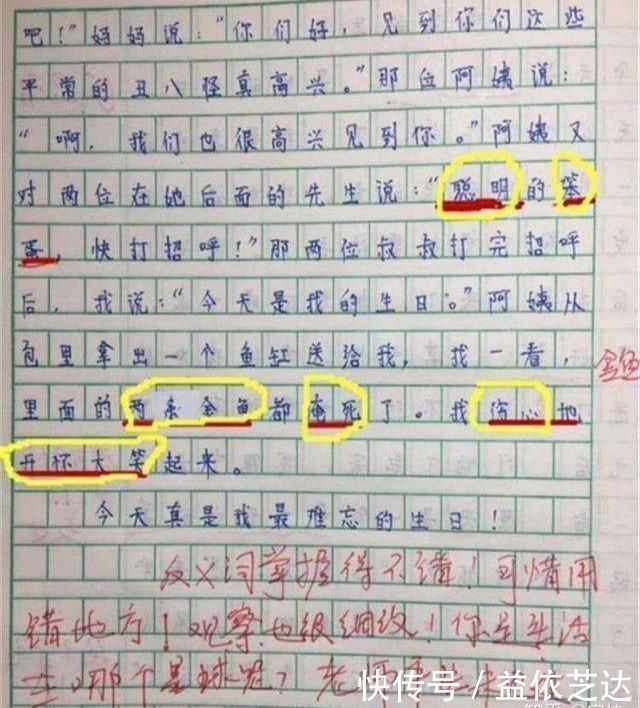 吧！”妈妈说：“你们好，见到你们这些
平常的丑八怪真高兴。”那位阿姨说：
“啊，我们也很高兴见到你。”阿姨又
对两位在她后面的先生说：“聪明的笨
蛋，快打招呼！”那两位叔叔打完招呼
后，我说：“今天是我的生日。”阿姨从
包里拿出一个鱼缸送给我，我一看，
金鱼
里面的两条金鱼都淹死了。我伤心地
开怀大笑起来。
今天真是我最难忘的生日！
反义词掌握得不错！可惜用
错地方！观察也很细致！你是生活
在哪个星球呢？老师
快传号/益依芝达